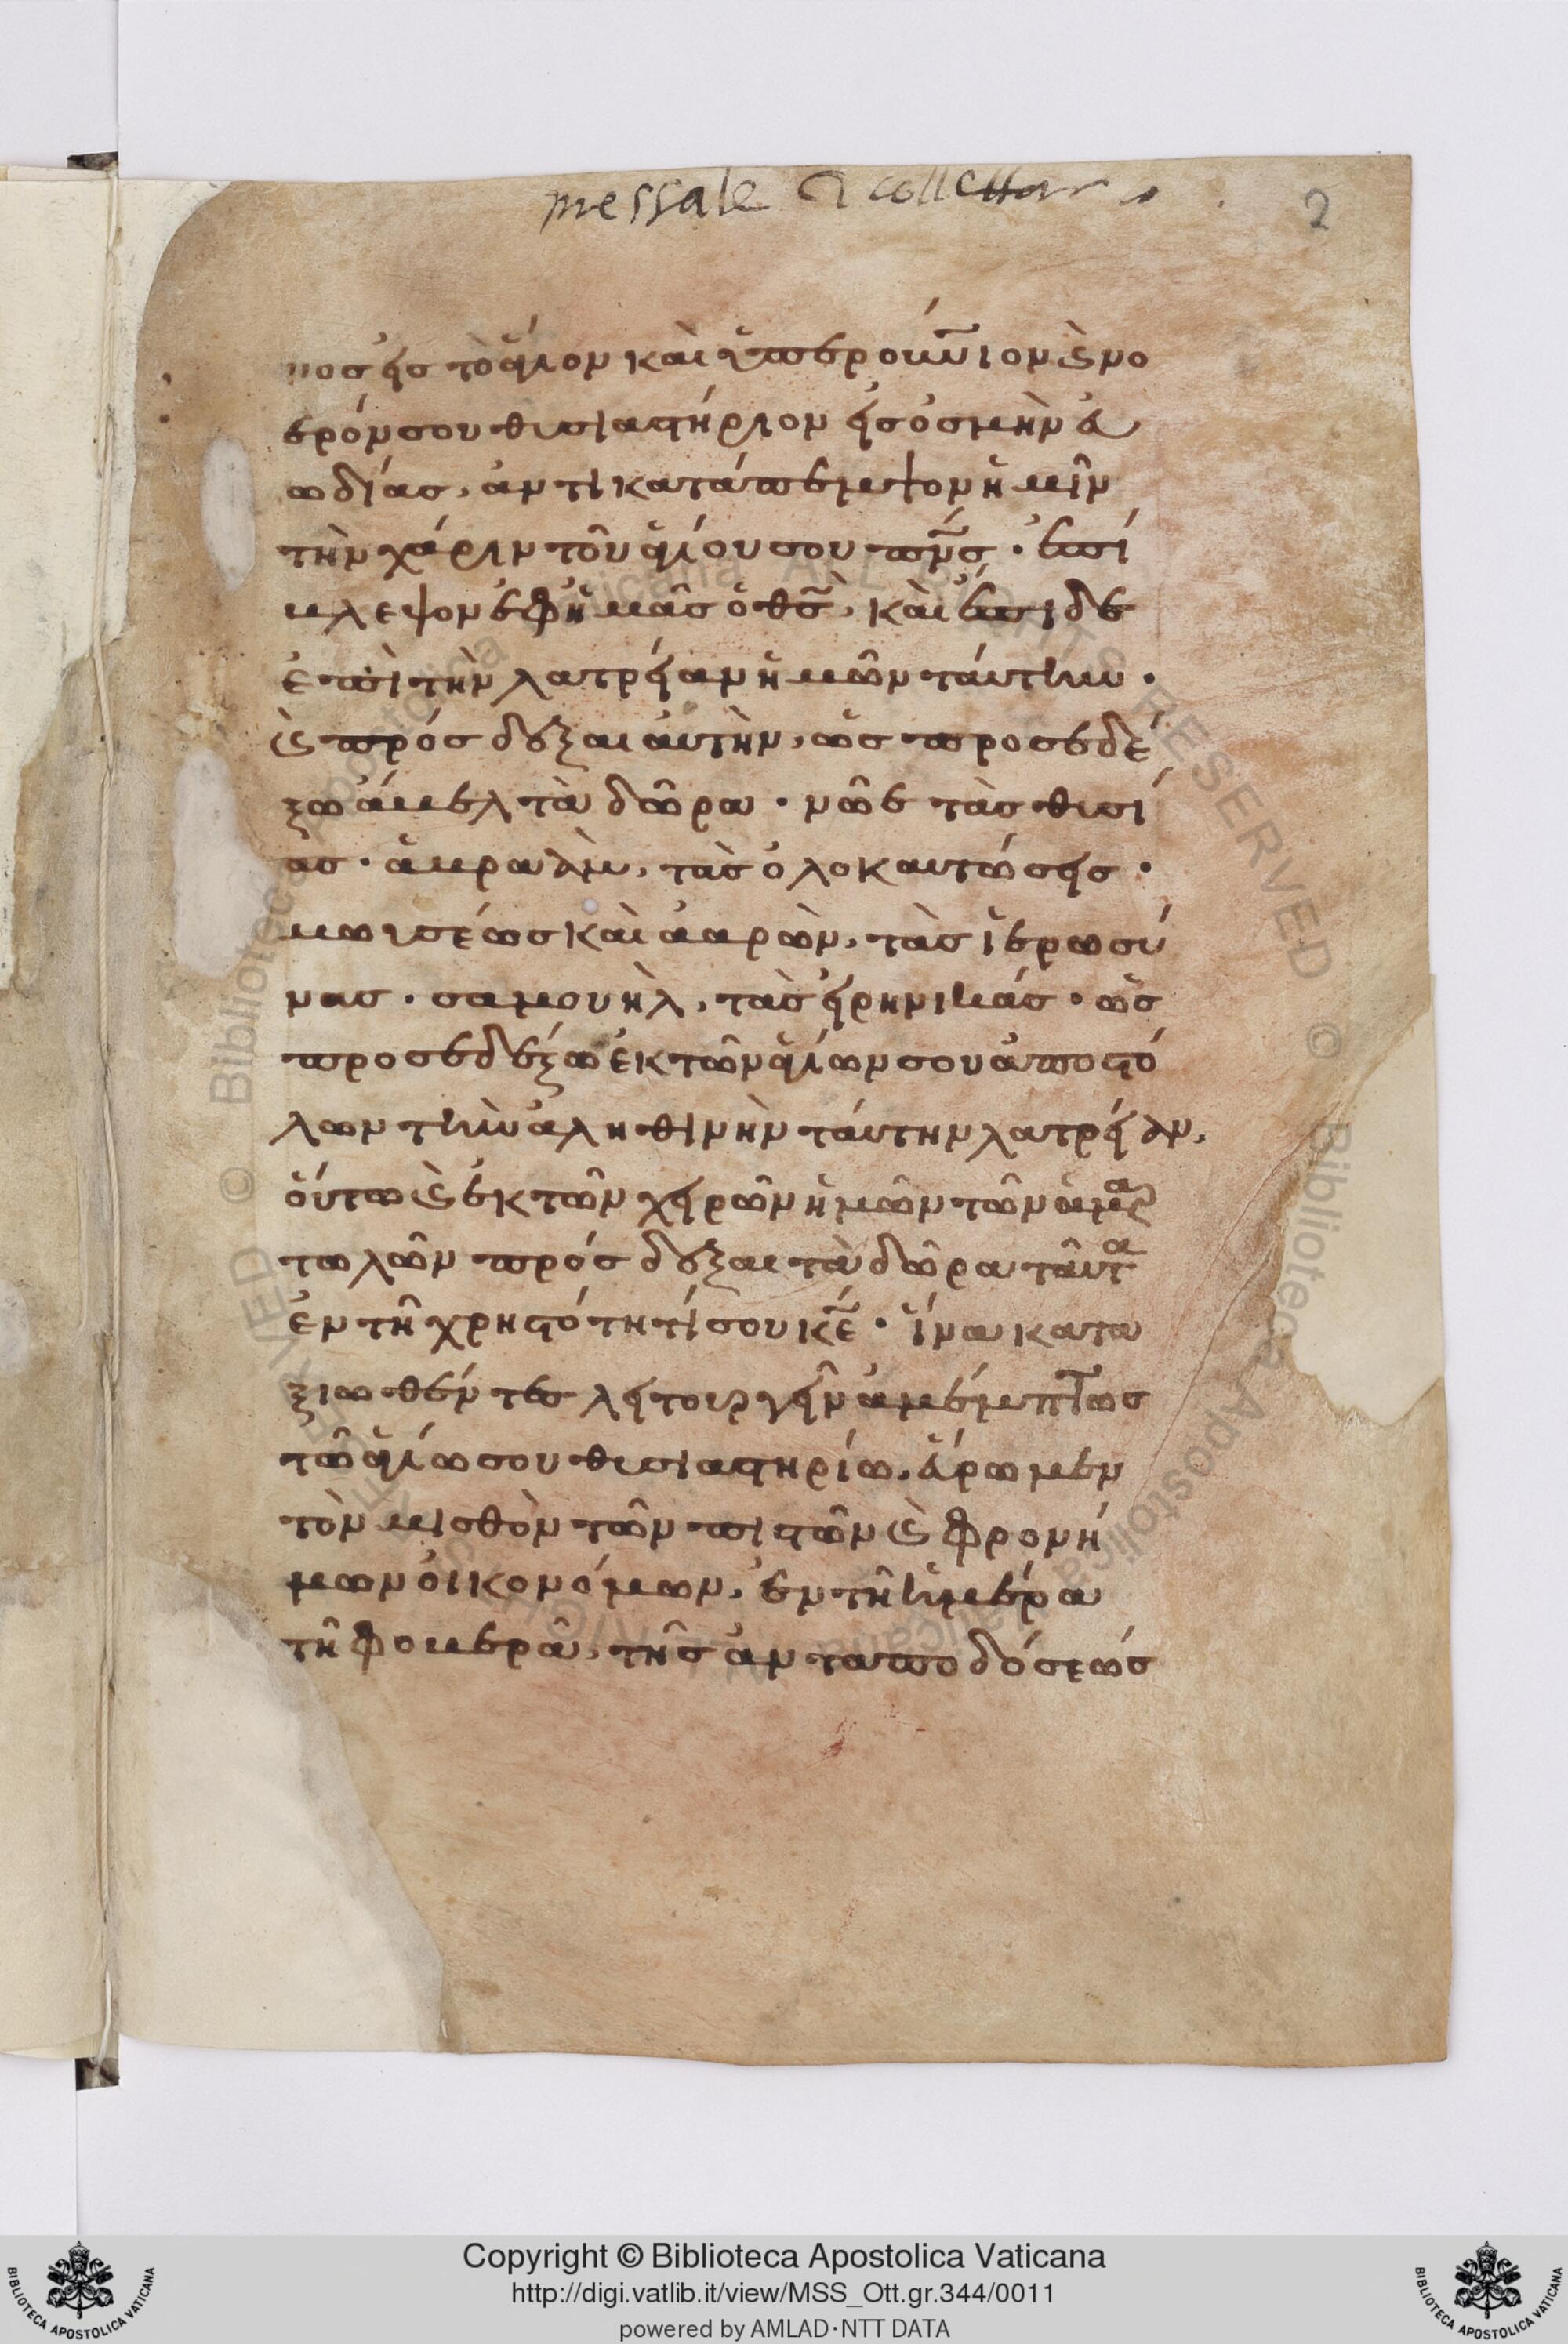 messale
2
νοσ εἰσ τὸ ἅγιον καὶ ὑπερουνιον ϗ νο
ερόν σου θυσιαστήριον εἰσ ὀσμὴν ἐυ
ωδίασ, ἀντικατάπεμψον ἡμῖν
τὴν χάριν τοῦ ἁγίου σου πνσ · ἐπί
βλεψον ἐφ ἡμᾶσ ὁ θσ, καὶ ἔπιδε
ἐπὶ τὴν λατρείαν ἡμῶν ταύτην ·
ϗ πρόσδεξαι αὐτὴν, ὡσ προσεδέ
ξω ἄβελ τὰ δῶρα · νῶε τὰσ θυσί
ασ · ἁβραὰμ, τὰσ ὁλοκαυτώσεισ ·
μωυσέωσ καὶ ἀαρὼν, τὰσ ἱερωσύ
νασ · σαμουὴλ, τὰσ εἰρηνικάσ · ὡσ
προσεδέξω ἐκ τῶν ἁγίων σου ἀποστό
λων τὴν ἀληθινὴν ταύτην λατρείαν,
ὅυτω ϗ ἐκ τῶν χειρῶν ἡμῶν τῶν ἁμαρ
τωλῶν πρόσδεξαι τὰ δῶρα ταῦτα
ἐν τῆ χρηστότητί σου κε · ἵνα κατα
ξιωθέντεσ λειτουργεῖν ἀμέμπτωσ
τῶ ἁγίω σου θυσιαστηρίω, ἕυρωμεν
τὸν μισθὸν τῶν πιστῶν ϗ φρονί
μων ὀικονόμων, ἐν τῆ ἡμέρα
τῆ φοβερᾶ, τῆσ ἀνταποδόσεώσ
Copyright © Biblioteca Apostolica Vaticana
http://digi.vatlib.it/view/MSS_Ott.gr.344/0011
powered by AMLAD·NTT DATA